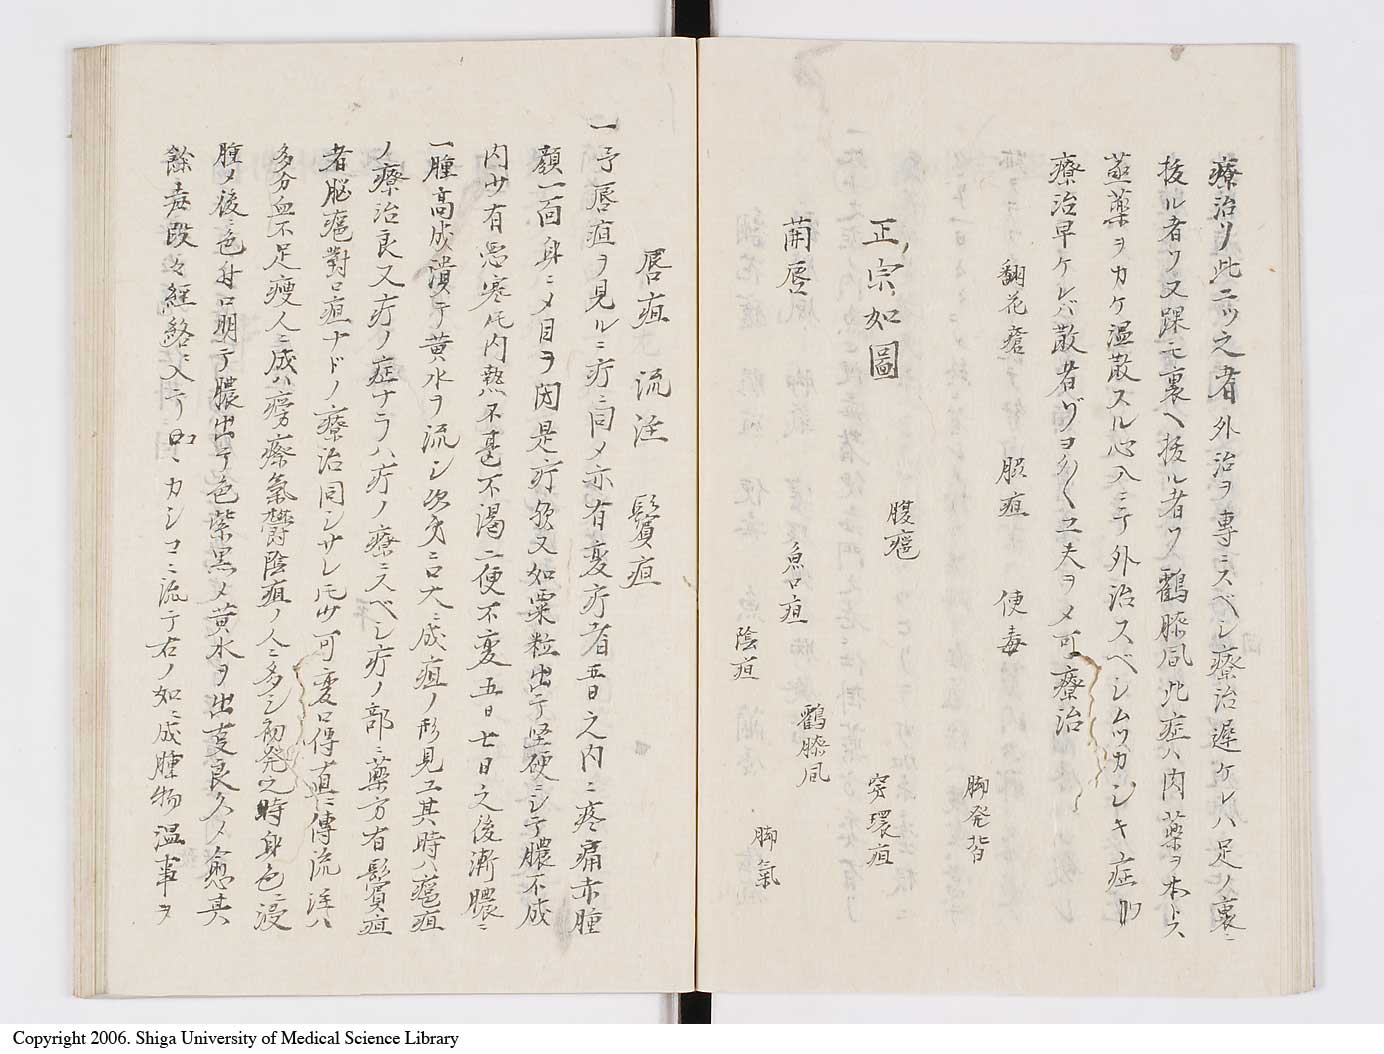 療治ソ此二ツ之者外治ヲ專ニスベシ療治遅ケレハ足ノ裏ニ
拔ル者ソ又踝モ裏ヘ拔ル者ソ鸛膝風此症ハ内藥ヲ本トス
藥ヲカケ温散スル心入ニテ外治スベシムツカシキ症也
療治早ケレバ散者ゾヨク〱工夫ヲメ可療治
翻花瘡 服疽 便毒 脚発背
正宗如圖 腹癰 穿環疽
繭唇 魚口疽 鸛膝風 脚氣
陰疽
唇疽 流注 鬢疽
一予唇疽ヲ見ルニ疔ニ同メ亦有変疔者五日之内ニ疼痛赤腫
顔一面身ニメ目ヲ因是疔欤又如粟粒出テ坚硬ニシテ膿不成
内サ有悪寒㐂内熱不甚不渇二便不変五日七日之後漸膿ニ
一腫高成潰テ黄水ヲ流シ次第ニ口大ニ成疽ノ形見ユ其時ハ癰疽
ノ療治良又疔ノ症ナラハ疔ノ療ニスベシ疔ノ部ニ藥方有鬢疽
者脳癰對口疽ナドノ療治同シサレ𪜈サ可変口傳直ニ傳流注ハ
多分血不足瘦人ニ成ハ瘀氣欝陰疽ノ人ニ多シ初発之時身色ニ浸
腫メ後ニ色付口明テ膿出テ色紫黒メ黄水ヲ出支良久メ愈其
餘毒段々經絡ニ入テカシコニ流テ右ノ如ニ成腫物温事ヲ
Copyright 2006. Shiga University of Medical Science Library